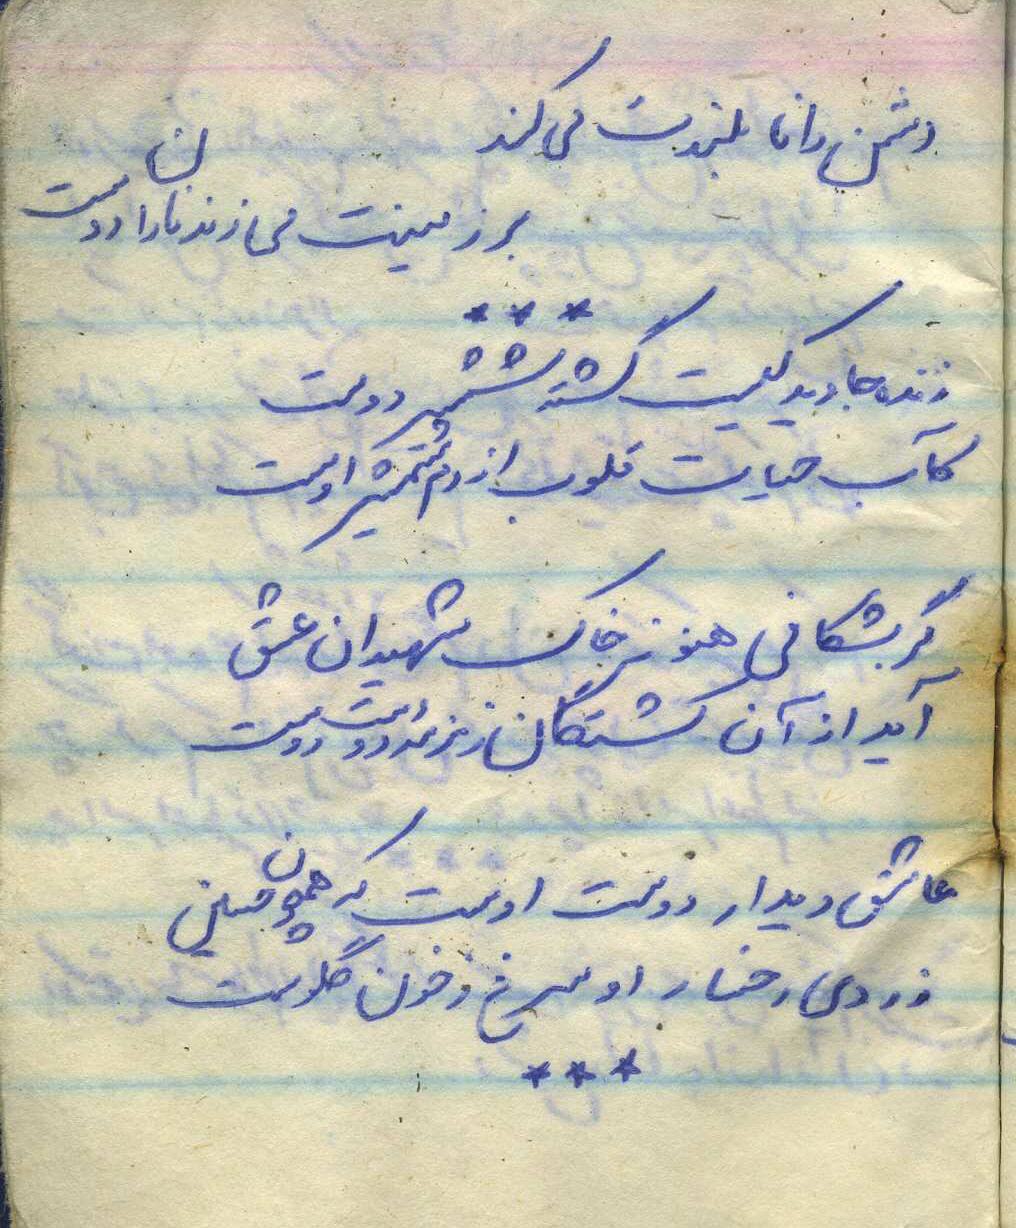 دشمن دانا بلندت می کند
بر زمینت می زند نادان دوست
***
زنده جاوید کیست کشته شمشیر دوست
کآب حیات قلوب از دم شمشیر اوست
گر بشکافی هنوز خاک شهیدان عشق
آید از آن کشتگان زمزمه دوست دوست
عاشق دیدار دوست اوست که همچون حسین
زردی رخسار او سرخ ز خون گلوست
***